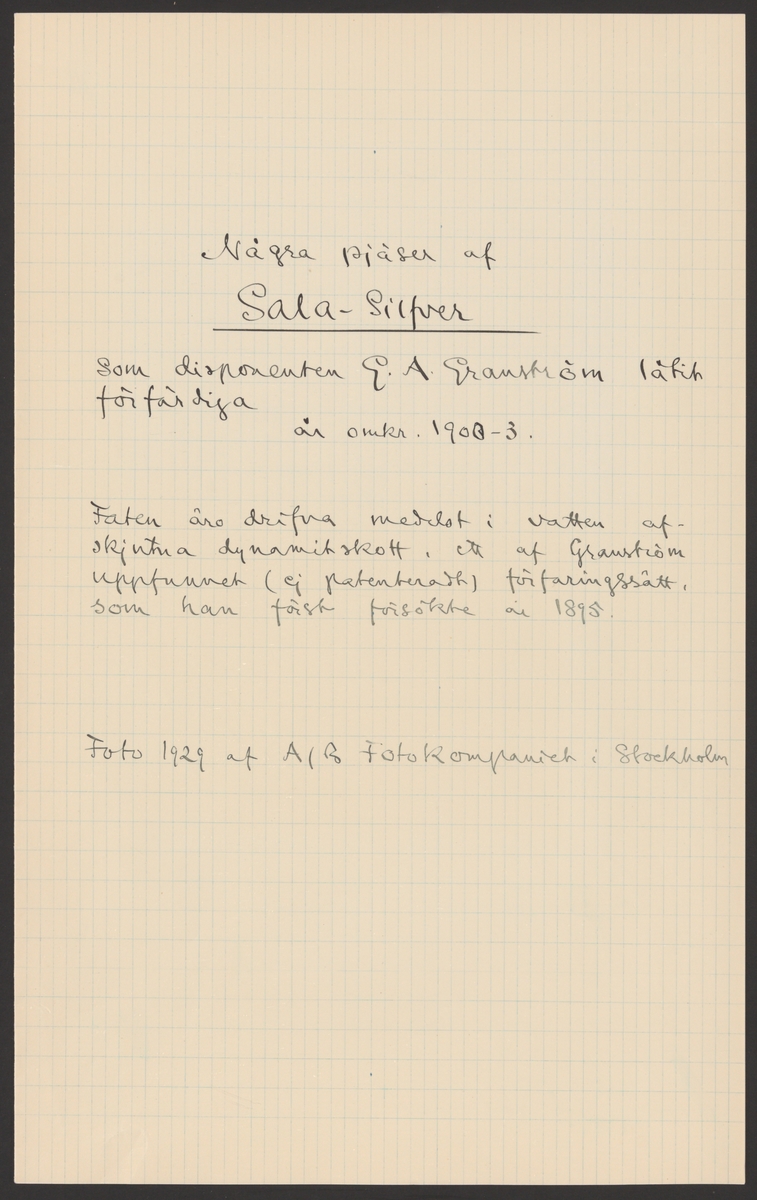 Några pjäser af
Sala-Silfver
som disponenten G. A. Granström låtit
förfärdiga
år omkr. 1900-3.
Faten äro drifva medelst i vatten af-
skjutna dynamitskott, ett af Granström
uppfunnet (ej patenteradt) förfaringssätt,
som han först försökte år 1895.
Foto 1929 af A/B Fotokompaniet i Stockholm